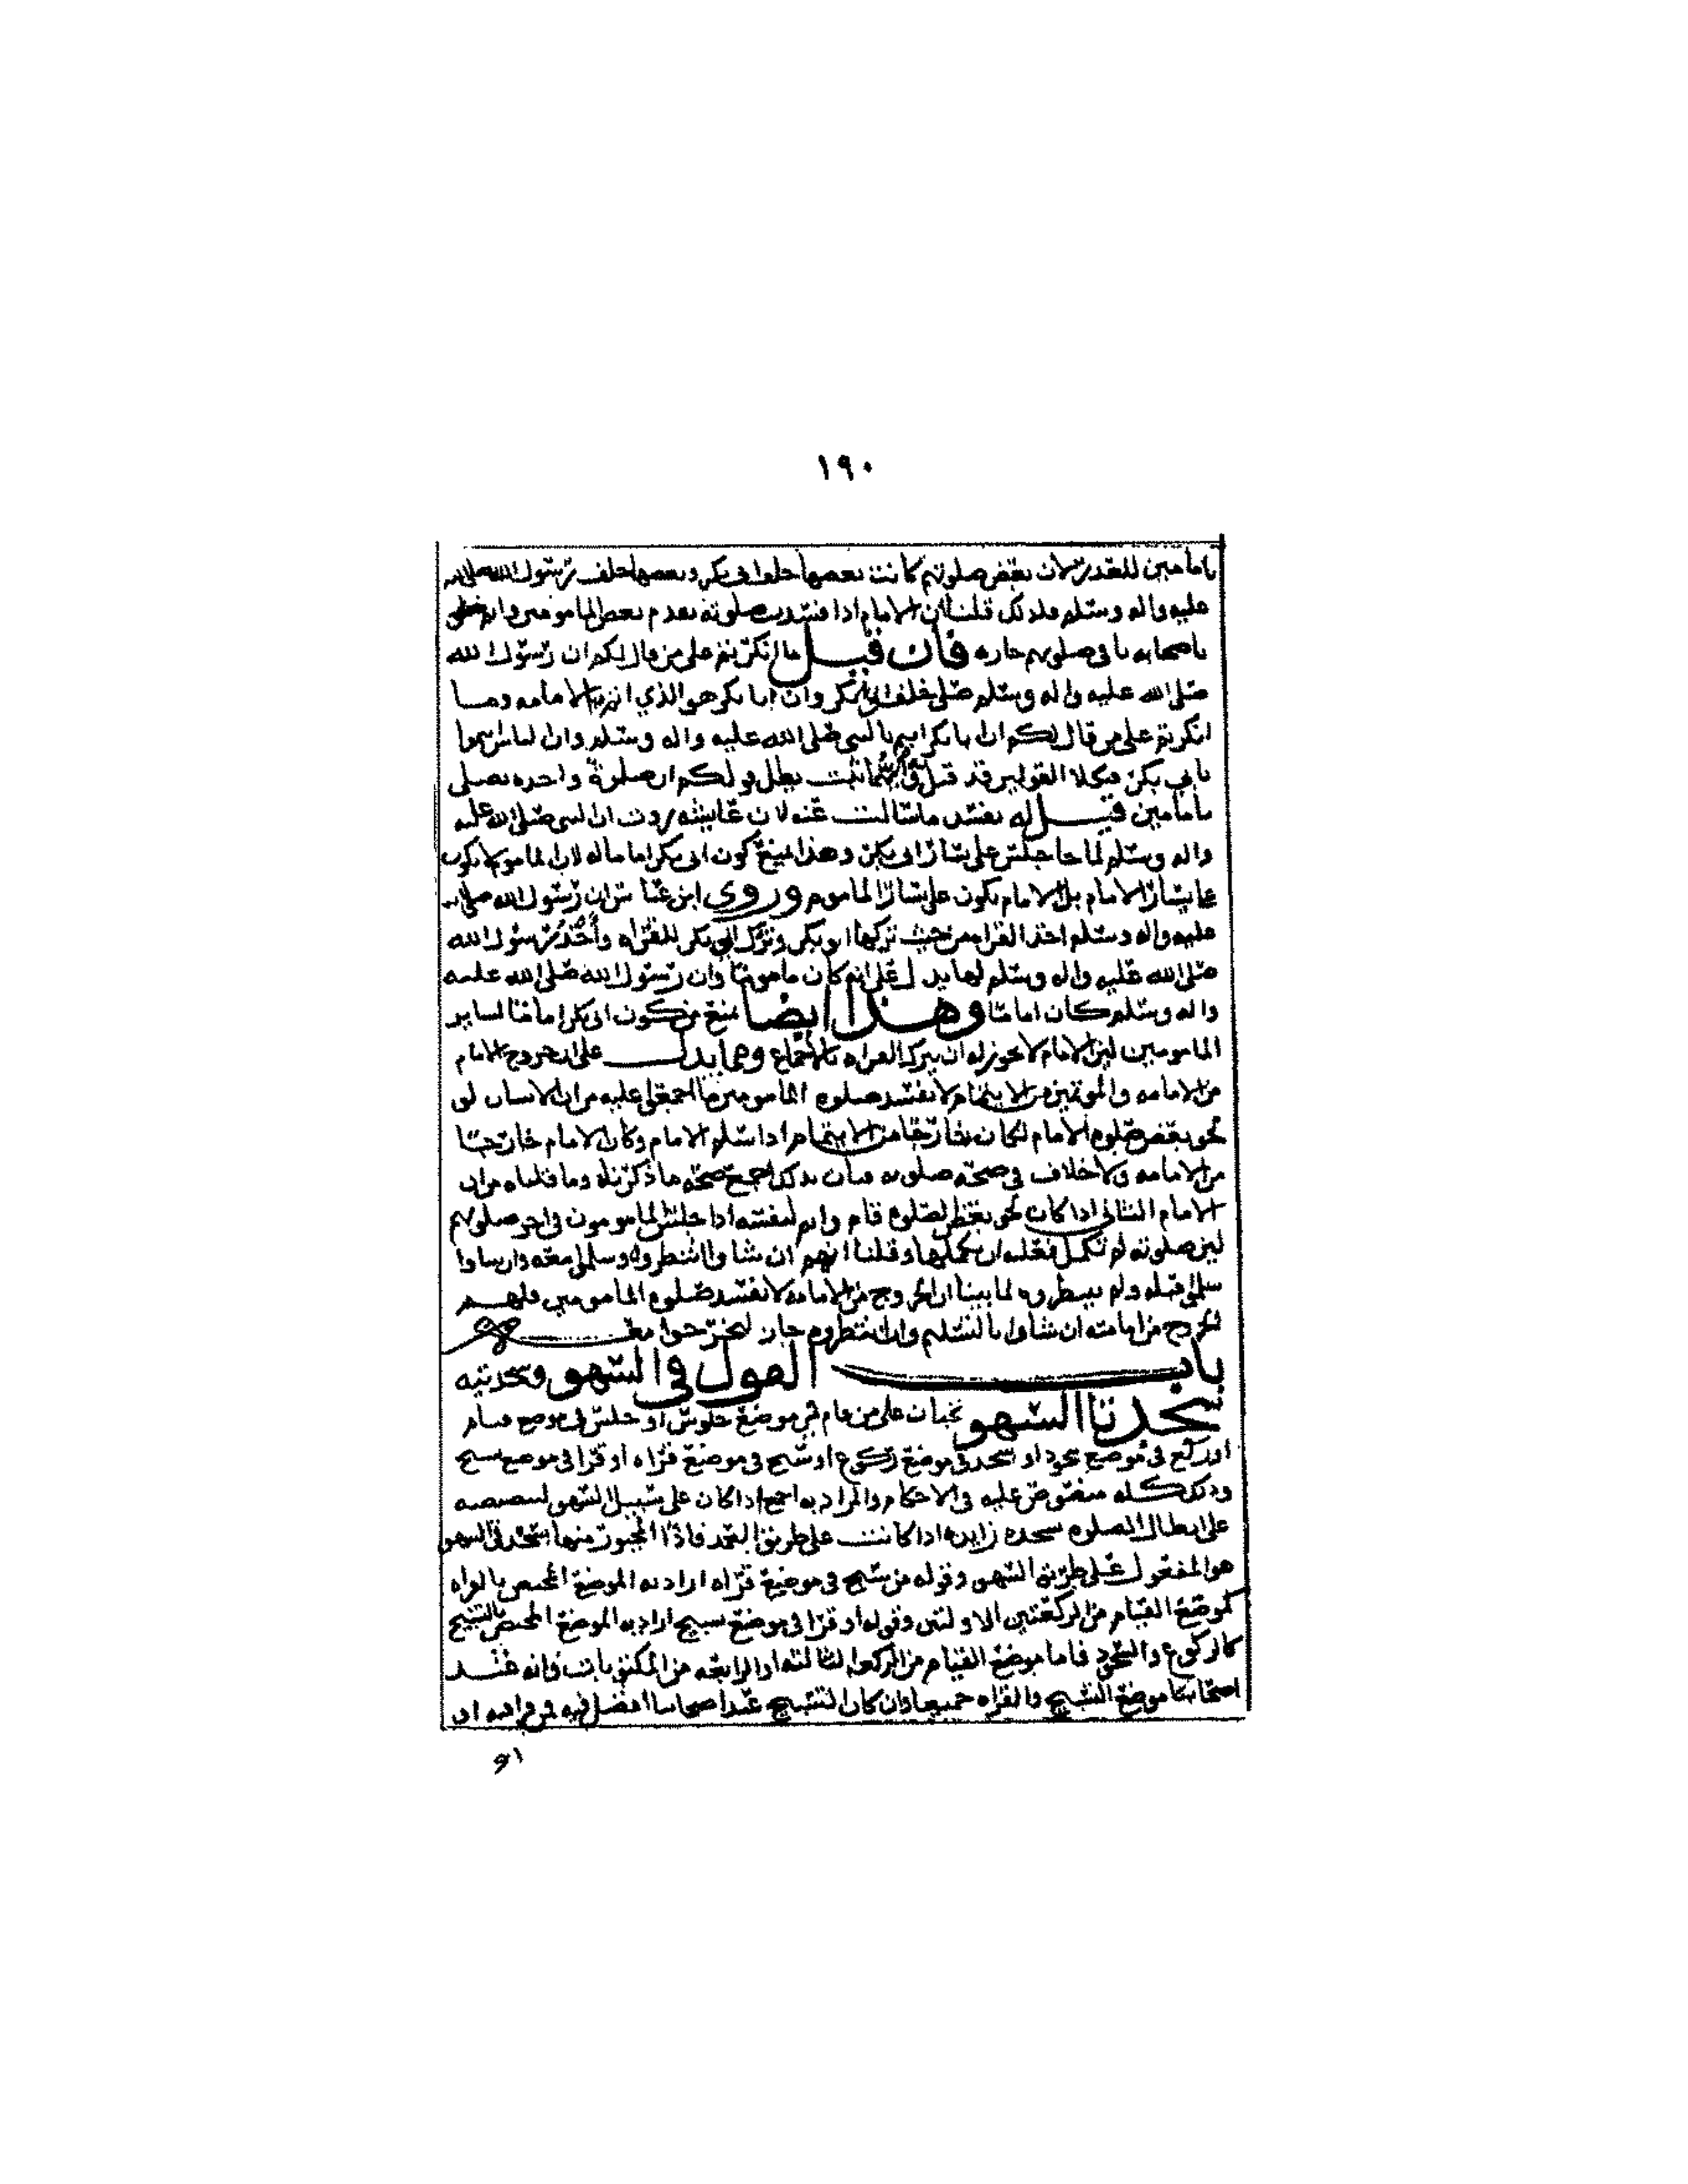 ١٩٠
بامامين للعذر لان بعض صلوتهم كانت بعضها خلف ابي بكر وبعضها خلف رسول الله صلى الله
عليه واله وسلم فلذلك قلنا ان الامام اذا فسدت صلوته تقدم بعض المامومين واتم
باصحابه باقي صلوتهم جاز فان قيل ما انكرتم على من قال لكم ان رسول الله
صلى الله عليه واله وسلم صلى خلف ابي بكر وان ابا بكر هو الذي الامامه وما
انكرتم على من قال لكم ان ابا بكر ايتم بالنبي صلى الله عليه واله وسلم وان الناس ايتموا
بابي بكر فكلا القولين قد قيل ثبت بطل قولكم ان صلوة واحده تصلى
بامامين قيل له يفسد ما سالت عنه لان عايشه روت ان النبي صلى الله عليه
واله وسلم لما جا جلس على يسار ابي بكر وهذا يمنع كون ابي بكر اماما له لان الماموم لا يكون
على يسار الامام بل الامام يكون على يسار الماموم وروى ابن عباس ان رسول الله صلى الله
عليه واله وسلم اخذ القراه من حيث تركها ابو بكر وترك ابي بكر للقراه واخذ رسول الله
صلى الله عليه واله وسلم لها يدل على انه كان ماموما وان رسول الله صلى الله عليه
واله وسلم كان اماما وهذا ايضا يمنع من كون ابي بكر اماما لساير
المامومين لان الامام لا يجوز له ان يترك القراه بالاجماع ومما يدل على ان خروج الامام
من الامامه والموتمين من الايتمام لا تفسد صلوه المامومين ما اجمعوا عليه من ان الانسان لو
لحق بعض صلوه الامام لكان خارجا من الايتمام اذا سلم الامام وكان الامام خارجا
من الامامه ولا خلاف في صحه صلوته فبان بذلك اجمع صحه ما ذكرناه وما قلناه من ان
الامام الثاني اذا كان لحق بعض الصلوه قام واتم لنفسه اذا جلس المامومون في اخر صلوتهم
لان صلوته لم تكمل فعليه ان يكملها وقلنا انهم ان شاوا انتظروه وسلموا معه وان شاوا
سلموا قبله ولم ينتظروه لما بينا ان الخروج من الامامه لا تفسد صلوه المامومين فلهم
الخروج من امامته ان شاوا بالتسليم وان انتظروه جاز ليخرجوا معه
باب القول في السهو وسجدتيه
سجدتا السهو تجبان على من قام في موضع جلوس او جلس في موضع قيام
او ركع في موضع سجود او سجد في موضع ركوع او سبح في موضع قراه او قرا في موضع تسبيح
وذلك كله منصوص عليه في الاحكام والمراد به اجمع اذا كان على سبيل السهو لتنصيصه
على ابطال الصلوه سجده زايده اذا كانت على طريق العمد فاذا المجبور منها بسجدتي السهو
هو المفعول على طريق السهو وقوله من سبح في موضع قراه اراد به الموضع المختص بالقراه
كموضع القيام من الركعتين الاولتين وقوله او قرا في موضع تسبيح اراد به الموضع المختص بالتسبيح
كالركوع والسجود فاما موضع القيام من الركعه الثالثه او الرابعه من المكتوبات فانه عند
اصحابنا موضع التسبيح والقراه جميعا وان كان التسبيح عند اصحابنا افضل فيه